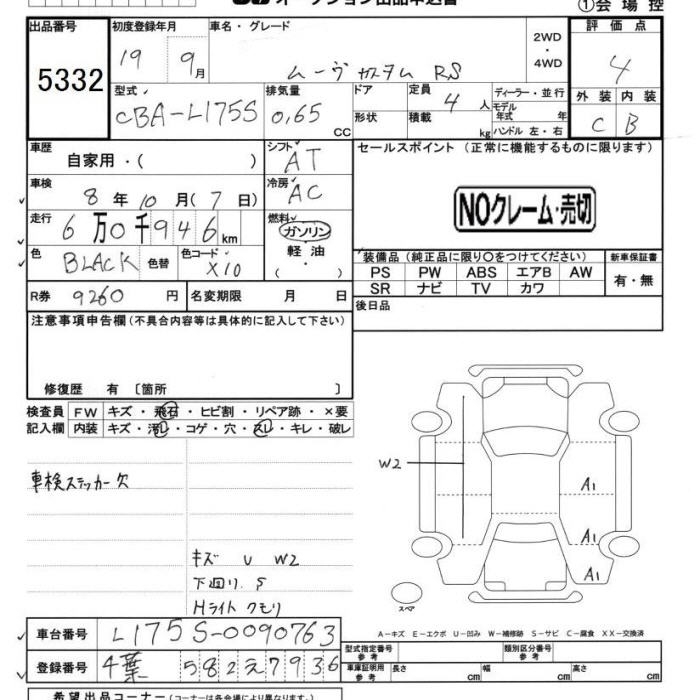 オークション出品申込書
①会場控
出品番号
5332
初度登録年月
19年 9月
車名・グレード
ムーヴ カスタム RS
2WD
・
4WD
評価点
4
型式
CBA-L175S
排気量
0.65 CC
ドア
形状
定員
4 人
積載
kg
ディーラー・並行
モデル年式 年
ハンドル 左・右
外装 内装
C B
車歴
自家用・( )
シフト
AT
セールスポイント (正常に機能するものに限ります)
車検
8年10月(7日)
冷房
AC
NOクレーム・売切
走行
6万0千946km
燃料
ガソリン
軽油
( )
色
BLACK
色替
色コード
X10
装備品 (純正品に限り〇をつけてください)
新車保証書
PS PW ABS エアB AW
有・無
SR ナビ TV カワ
R券 9260 円
名変期限 月 日
後日品
注意事項申告欄 (不具合内容等は具体的に記入して下さい)
修復歴 有 〔箇所 〕
検査員 FW キズ・飛石・ヒビ割・リペア跡・×要
記入欄 内装 キズ・汚レ・コゲ・穴・スレ・キレ・破レ
車検ステッカー欠
キズ U W2
下回り.S
Hライト クモリ
W2
A1
A1
A1
スペア
A-キズ E-エクボ U-凹み W-補修跡 S-サビ C-腐食 XX-交換済
車台番号 L175S-0090763
型式指定番号
参考
類別区分番号
参考
登録番号 千葉 582え7936
車庫証明用
参考
長さ cm 幅 cm 高さ cm
希望出品コーナー (コーナーは各会場により異なります。)